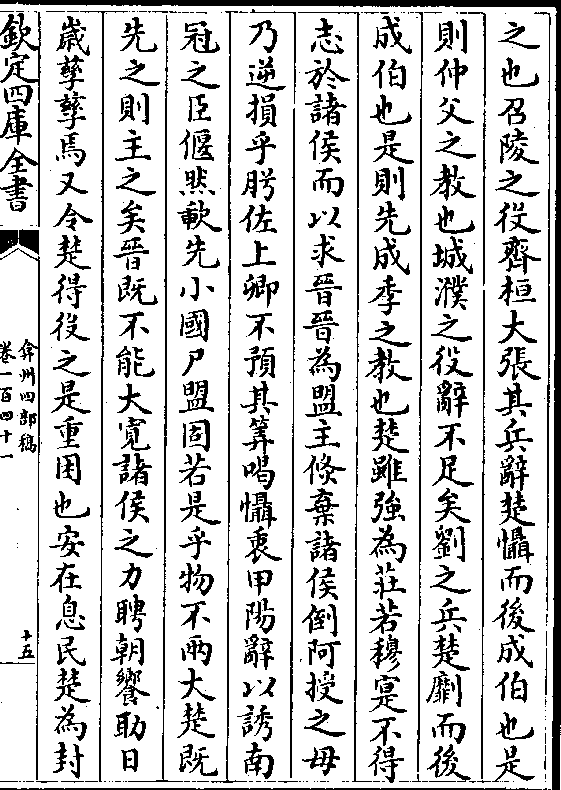 之也召陵之役齊桓大張其兵辭楚懾而後成伯也是
則仲父之教也城濮之役辭不足矣劉之兵楚劘而後
成伯也是則先成季之教也楚雖強為莊若穆寔不得
志於諸侯而以求晉晉為盟主倏棄諸侯倒阿授之毋
乃逆損乎肹佐上卿不預其筭喝懾衷甲陽辭以誘南
冠之臣偃然歃先小國尸盟固若是乎物不兩大楚既
先之則主之矣晉既不能大寬諸侯之力聘朝饗助日
歲孳孳焉又令楚得役之是重困也安在息民楚為封
欽定四庫全書
弇州四部稿
卷一百四十一
十五